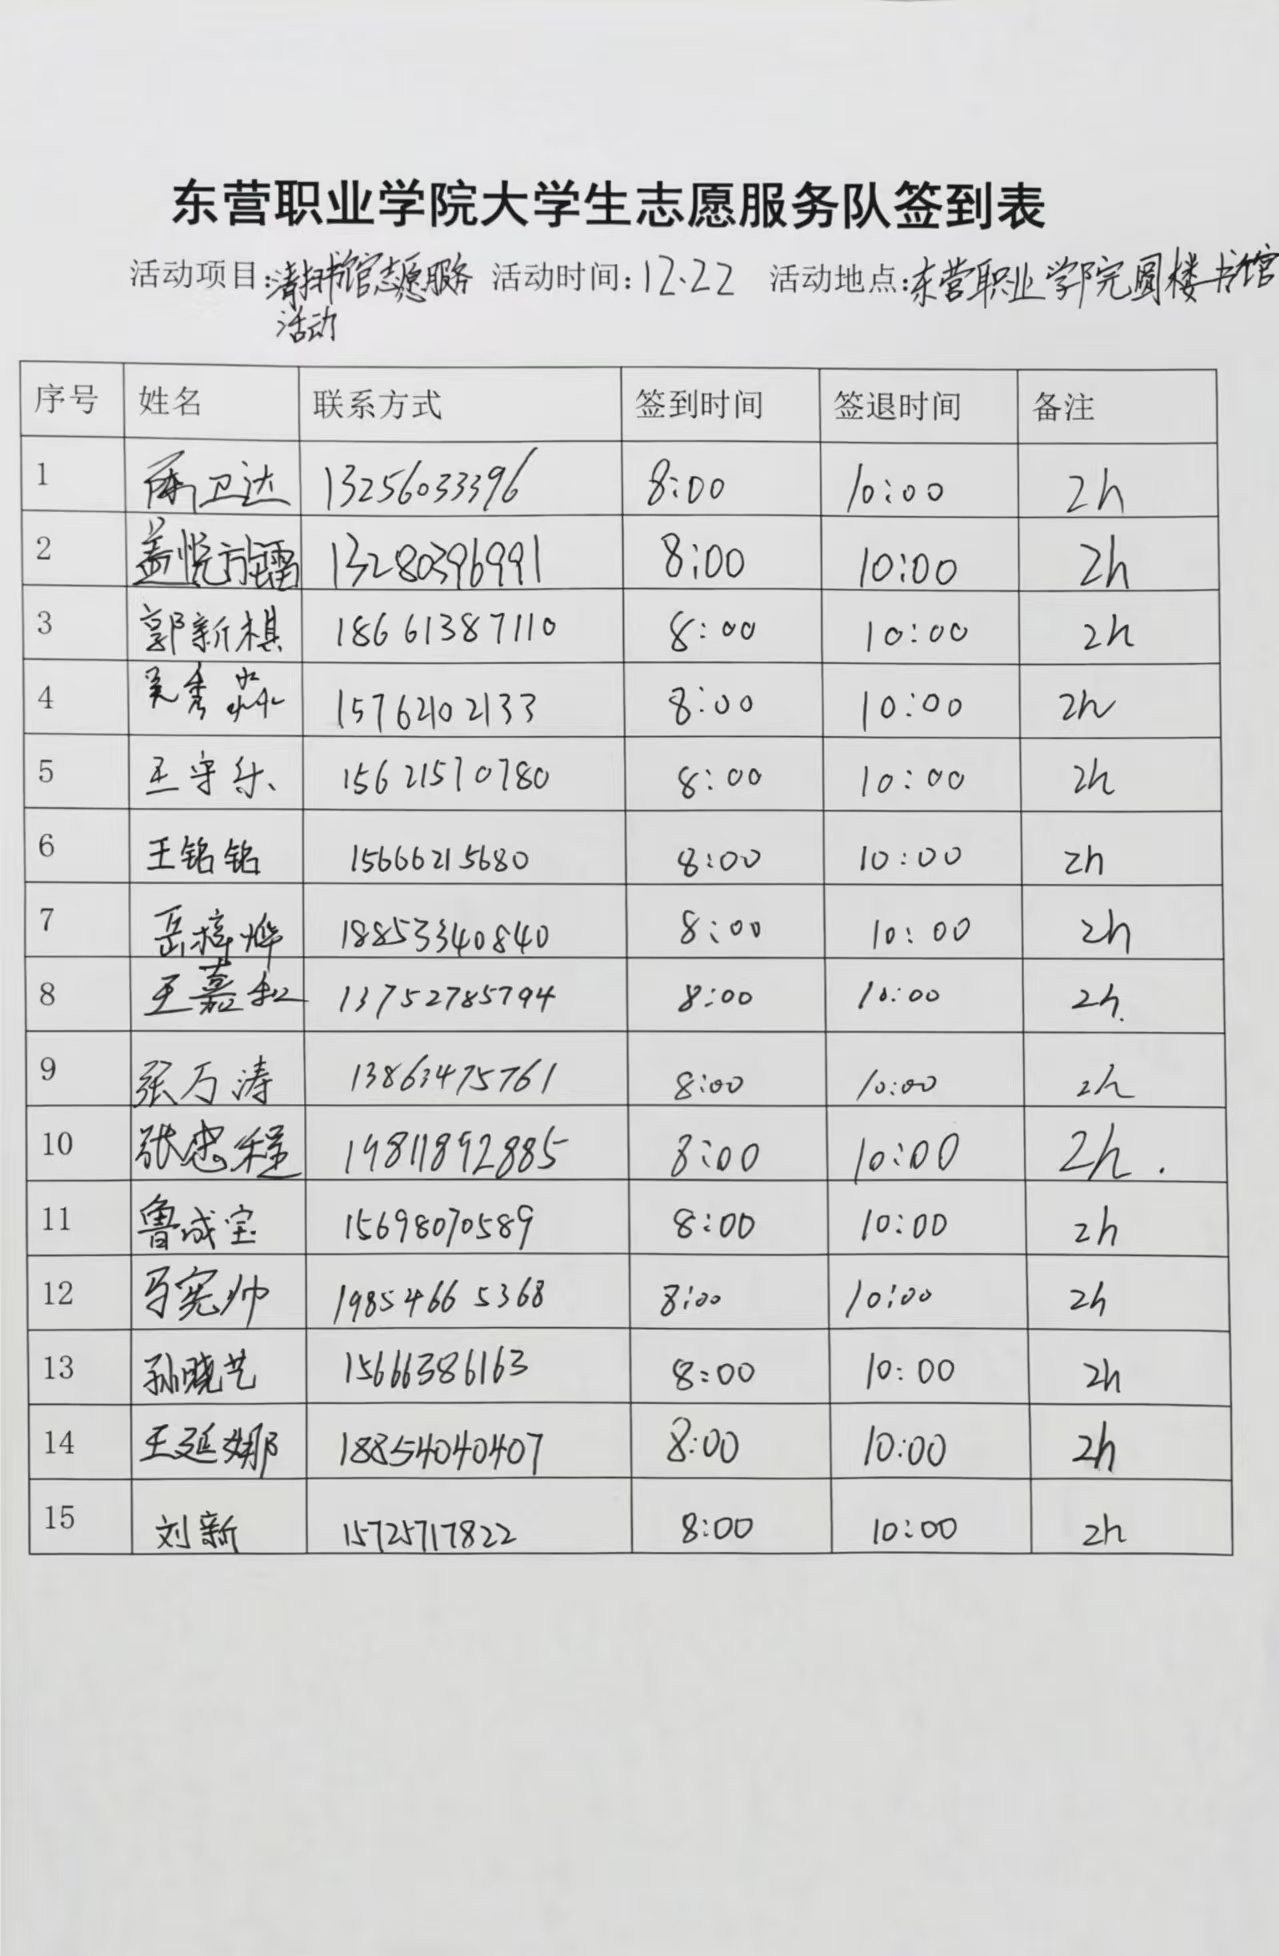 东营职业学院大学生志愿服务队签到表
活动项目:清扫书馆志愿服务 活动时间:12.22 活动地点:东营职业学院圆楼书馆
活动
序号 姓名 联系方式 签到时间 签退时间 备注
1 卫达 13256033396 8:00 10:00 2h
2 盖悦 13280396991 8:00 10:00 2h
3 郭新棋 18661387110 8:00 10:00 2h
4 吴秀 15762102133 8:00 10:00 2h
5 王守乐 15621570780 8:00 10:00 2h
6 王铭铭 15666215680 8:00 10:00 2h
7 岳梓烨 18853340840 8:00 10:00 2h
8 王嘉和 13752785794 8:00 10:00 2h.
9 张万涛 13863475761 8:00 10:00 2h
10 张忠程 19811892885 8:00 10:00 2h.
11 鲁成宝 15698070589 8:00 10:00 2h
12 马宪帅 19854665368 8:00 10:00 2h
13 孙晓艺 15666386163 8:00 10:00 2h
14 王延娜 18854040407 8:00 10:00 2h
15 刘新 15725717822 8:00 10:00 2h